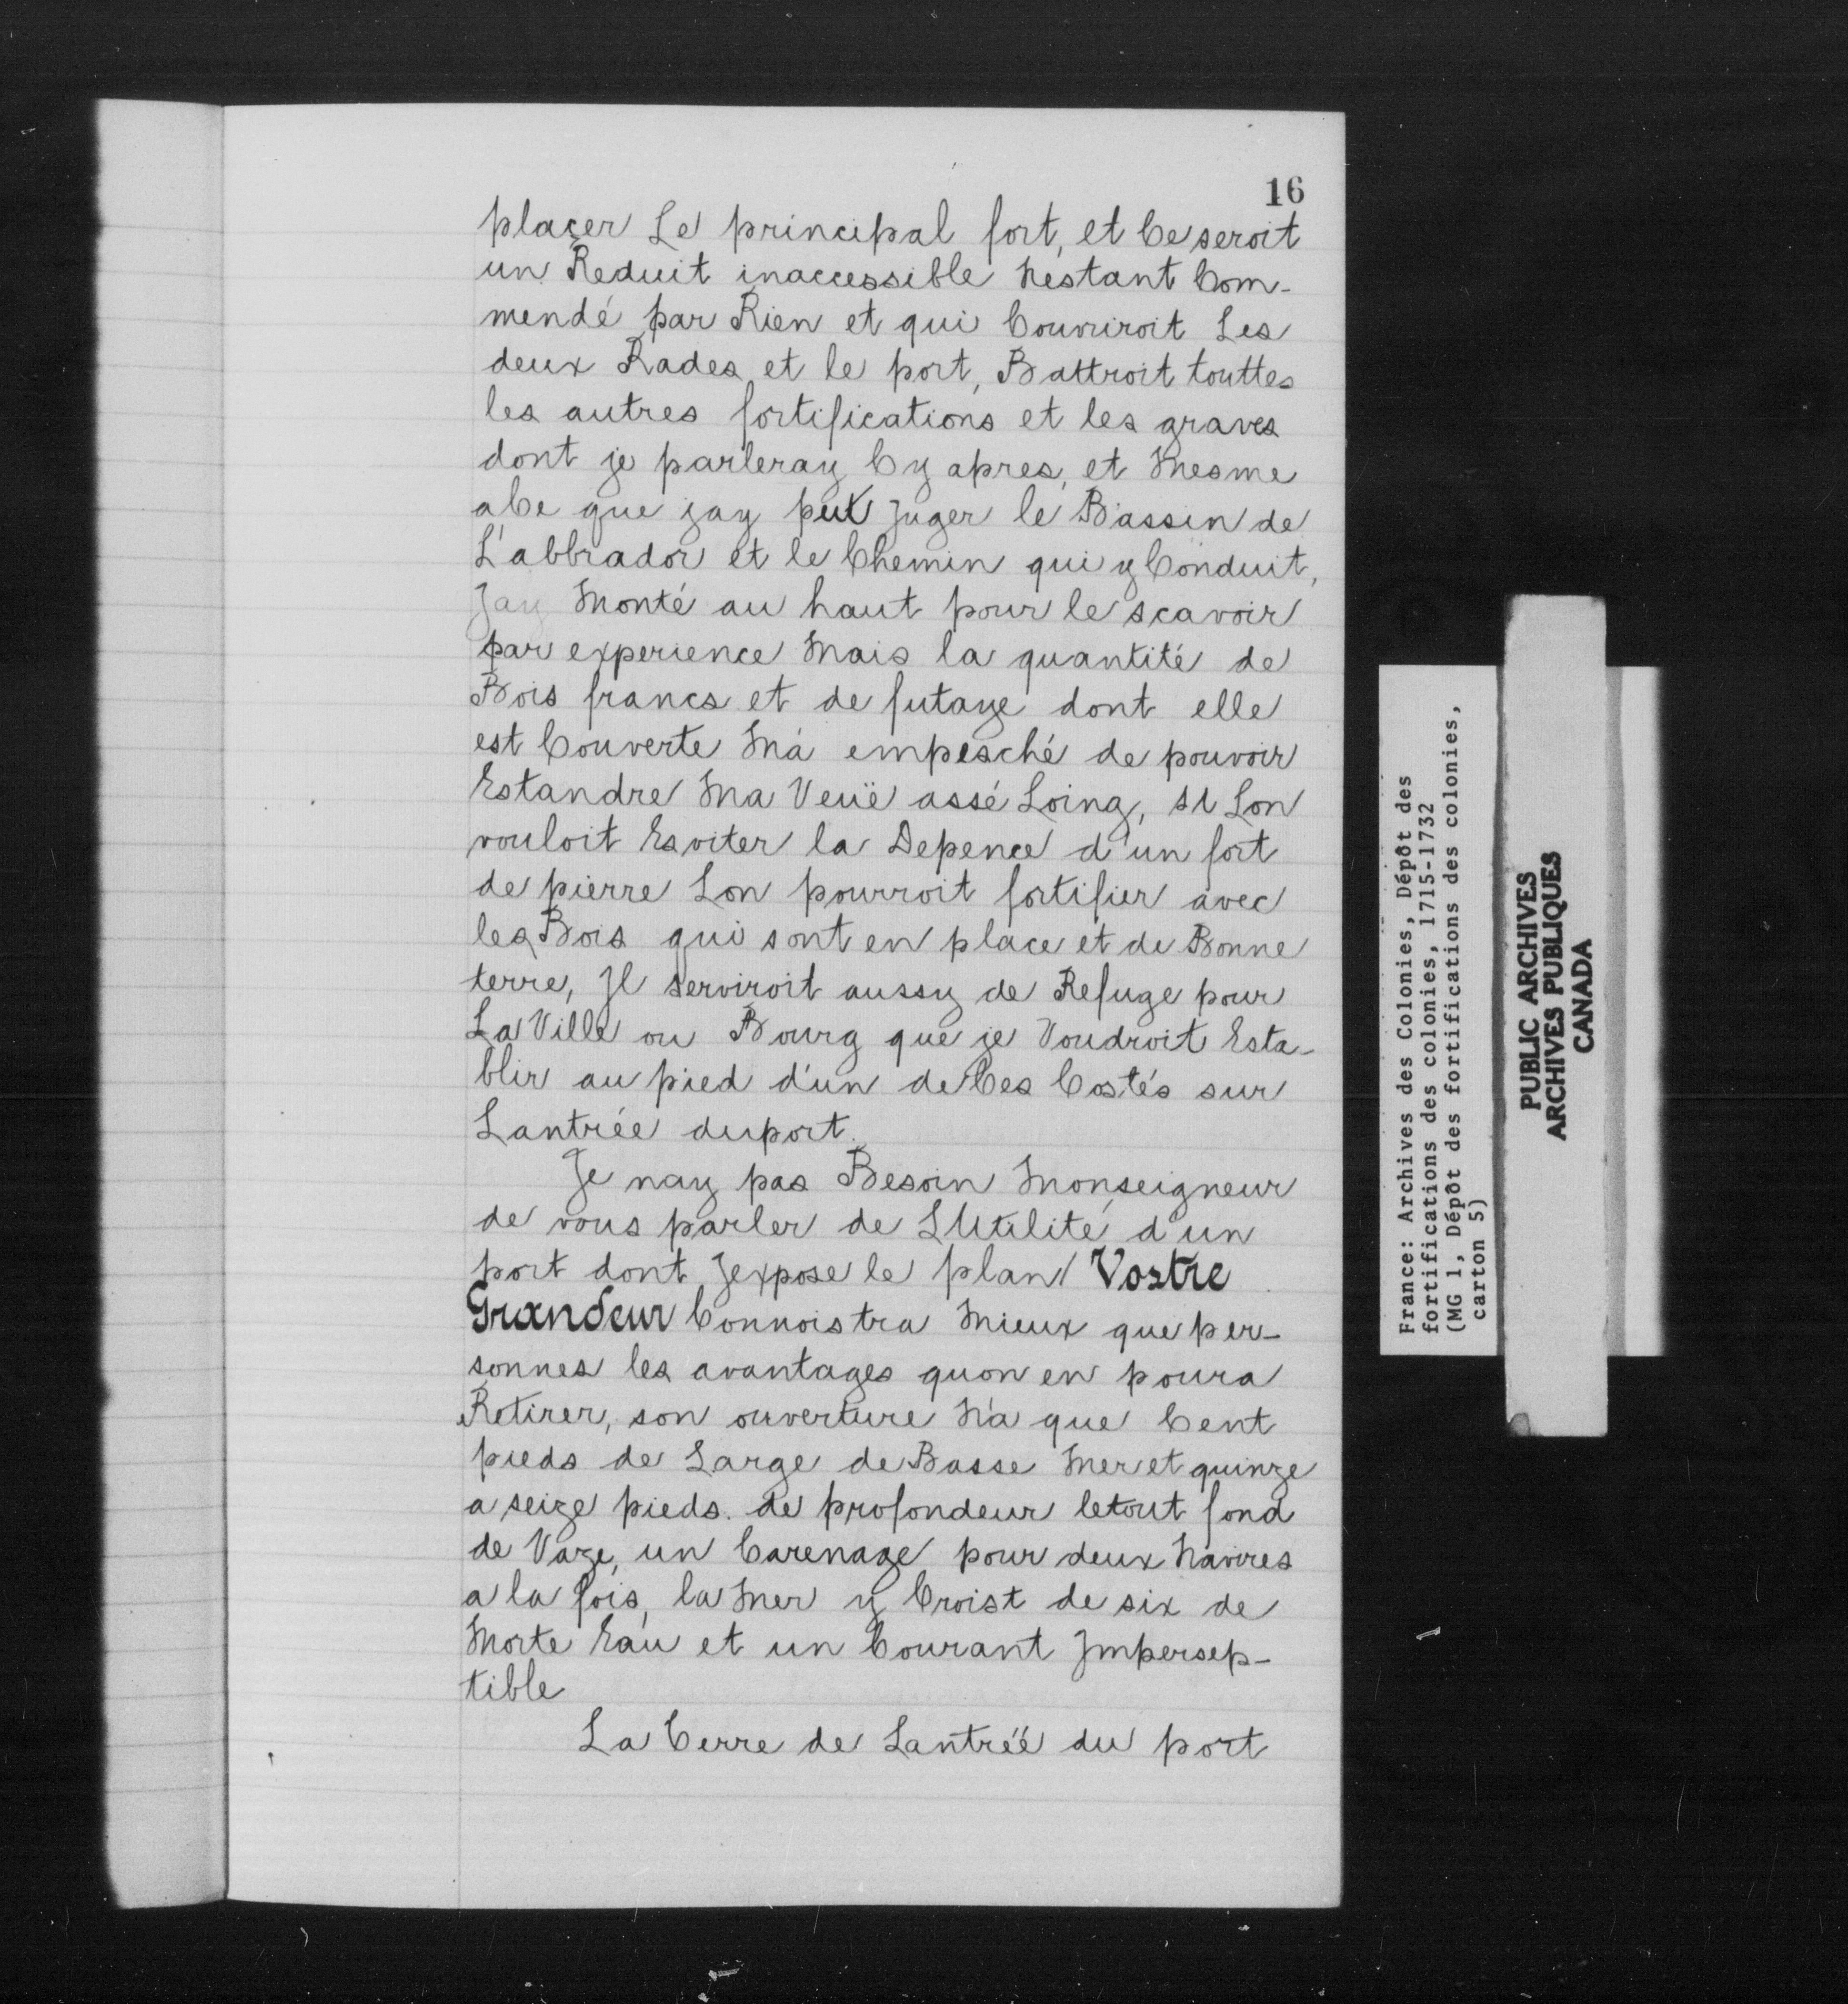 16
placer Le principal fort, et Ce seroit
un Reduit inaccessible Nestant Com-
mendé par Rien et qui Couvriroit Les
deux Rades et le port, Battroit touttes
les autres fortifications et les graves
dont je parleray Cy apres, et Mesme
a Ce que jay put Juger le Bassin de
L'abbrador et le Chemin qui y Conduit,
Jay Monté au haut pour le scavoir
par experience Mais la quantité de
Bois francs et de futaye dont elle
est Couverte M'a empesché de pouvoir
Estandre Ma Veuë assé Loing, si Lon
vouloit Esviter la Depence d'un fort
de pierre Lon pourroit fortifier avec
les Bois qui sont en place et de Bonne
terre, Il serviroit aussy de Refuge pour
La Ville ou Bourg que je Voudroit Esta-
blir au pied d'un de Ces Costés sur
Lantrée du port.
Je nay pas Besoin Monseigneur
de vous parler de LUtilité d'un
port dont Jexpose le plan Vostre
Grandeur Connoistra Mieux que per-
sonnes les avantages quon en poura
Retirer, son ouverture N'a que Cent
pieds de Large de Basse Mer et quinze
a seize pieds de profondeur le tout fond
de Vaze, un Carenage pour deux Navires
a la fois, la Mer y Croist de six de
Morte Eau et un Courant Jmpersep-
tible
La Terre de Lantréé du port
France: Archives des Colonies, Dépôt des
fortifications des colonies, 1715-1732
(MG 1, Dépôt des fortifications des colonies,
carton 5)
PUBLIC ARCHIVES
ARCHIVES PUBLIQUES
CANADA